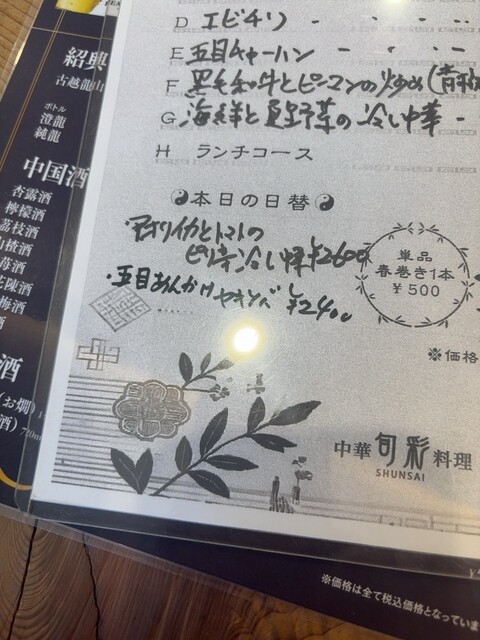 D エビチリ
E 五目チャーハン
F 黒毛和牛とピーマンの炒め(青椒
G 海鮮と夏野菜の冷し中華
H ランチコース
本日の日替
・アオリイカとトマトの
ピリ辛冷し中華 ¥2600
・五目あんかけヤキソバ ¥2400
単品
春巻き1本
¥500
※価格
中華 旬彩 料理
SHUNSAI
紹興
古越龍山
ボトル
澄龍
純龍
中国酒
杏露酒
檸檬酒
茘枝酒
山楂酒
苺酒
陳酒
梅酒
酒
酒
(お燗)
酒)
※価格は全て税込価格となっていま